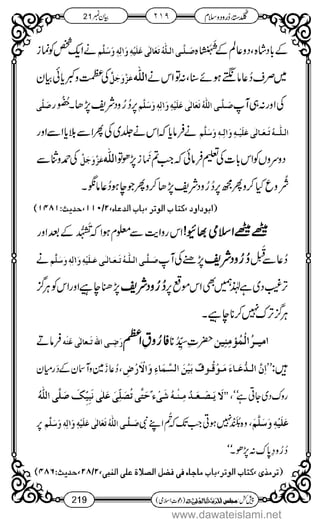 بیان نمبر 21 ۲۱۹ گلدستۂ درود و سلام
کے بادشاہ، دو عالم کے شہنشاہ صَلَّی اللّٰہُ تَعَالٰی عَلَیْہِ وَاٰلِہٖ وَسَلَّم نے ایک شخص کو نماز
میں صرف دُعا مانگتے ہوئے سنا، نہ تو اس نے اللہ عَزَّوَجَلَّ کی عظمت و کبریائی بیان
کی اور نہ ہی آپ صَلَّی اللّٰہُ تَعَالٰی عَلَیْہِ وَاٰلِہٖ وَسَلَّم پر دُرُود شریف پڑھا۔ حُضُور صَلَّی
اللّٰہُ تَعَالٰی عَلَیْہِ وَاٰلِہٖ وَسَلَّم نے فرمایا کہ اس نے جلدی کی پھر اسے بلایا اور اسے اور
دوسروں کو اس بات کی تعلیم فرمائی کہ جب تم نماز پڑھو تو اللہ عَزَّوَجَلَّ کی حمد و ثناء سے
شُروع کیا کرو پھر مجھ پر دُرُود شریف پڑھا کرو پھر جو چاہو دُعا مانگو۔
(ابوداود، کتاب الوتر، باب الدعاء، ۱۱۰/۲، حدیث: ۱۴۸۱)
میٹھے میٹھے اسلامی بھائیو! اس روایت سے معلوم ہوا کہ تشہُّد کے بعد اور
دُعا سے قبل آپ صَلَّی اللّٰہُ تَعَالٰی عَلَیْہِ وَاٰلِہٖ وَسَلَّم نے دُرُود شریف پڑھنے کی
ترغیب دی ہے لہٰذا ہمیں بھی اس موقع پر دُرُود شریف پڑھنا چاہیے اور اس کو ہرگز
ہرگز ترک نہیں کرنا چاہیے۔
امیرُ الْمُؤْمِنِیْن حضرتِ سَیِّدُنا فاروقِ اعظم رَضِیَ اللّٰہُ تَعَالٰی عَنْہُ فرماتے
ہیں: ’’اِنَّ الدُّعَاءَ مَوْقُوْفٌ بَیْنَ السَّمَاءِ وَالْاَرْضِ، دُعا زمین و آسمان کے درمیان
روک دی جاتی ہے‘‘، ’’لَا یَصْعَدُ مِنْہُ شَیْءٌ حَتّٰی تُصَلِّیَ عَلٰی نَبِیِّکَ صَلَّی اللّٰہُ
عَلَیْہِ وَسَلَّمَ، وہ بلند نہیں ہوتی جب تک کہ تم اپنے نبی صَلَّی اللّٰہُ تَعَالٰی عَلَیْہِ وَاٰلِہٖ وَسَلَّم پر
دُرُودِ پاک نہ پڑھو۔‘‘
(ترمذی، کتاب الوتر، باب ماجاء فی فضل الصلاۃ علی النبی، ۲۸/۲، حدیث: ۴۸۶)
219
www.dawateislami.net